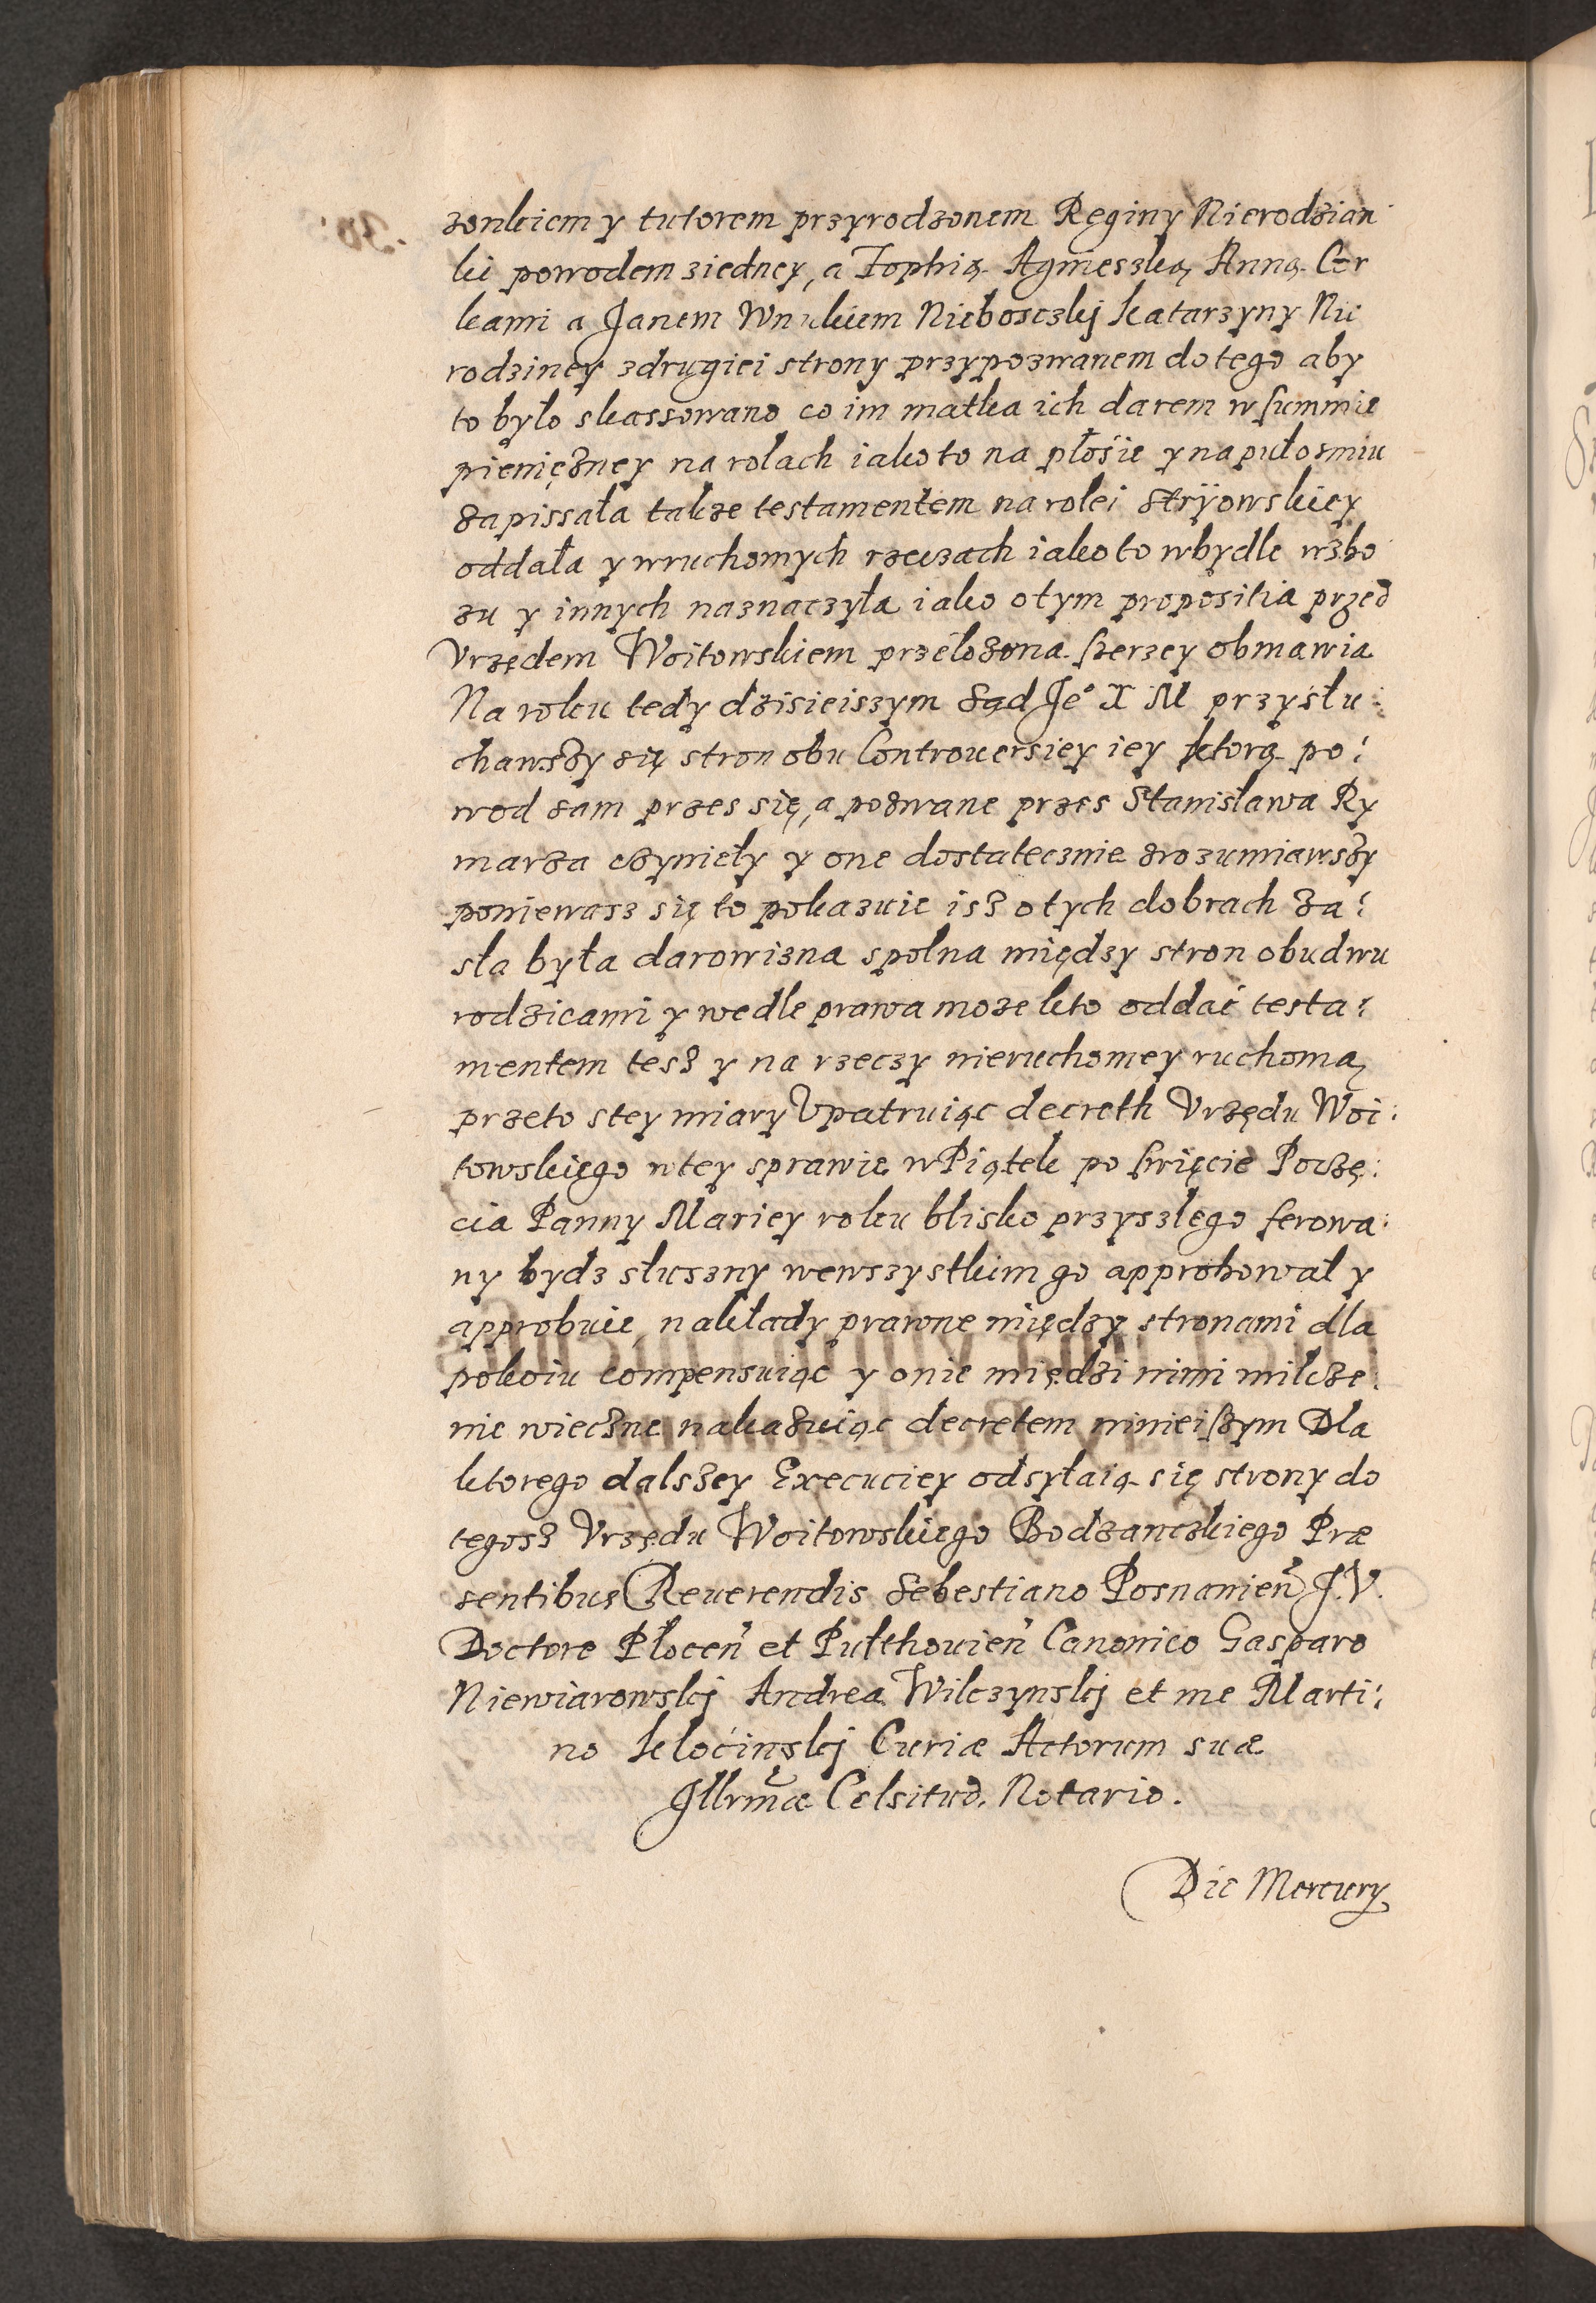 zonkiem y tutorem przyrodzonem Ręginy Nierodzian
ki powodem ziedney, a Zophią Agnieszką Anną Cor
kami a Janem Wnukiem Nieboszczkj Katarzyny Nie
rodziney zdrugiei strony przypozwanem do tego aby
to było skassowano co im matka ich darem w summie
pieniężney na rolach iako to na płosie y na pułosmiu
zapissała takze testamentem na rolei Stryiowskiey
oddała y wruchomych rzeczach iako to wbydle wzbo
zu y innych naznaczyła iako o tym propositia przed
Vrzędem Woitowskiem przełozona szerzey obmawia
Na roku tedy dzisieiszym Sąd Je° X M przysłu:
chawszy się stron obu Controuersiey iey ktorą po:
wod sam przes się, a pozwane przes Stanisława Ry
marza czyniely y one dostatecznie zrozumiawszy
poniewasz się to pokazuie isz o tych dobrach Za:
sła była darowizna spolna między stron obudwu
rodzicami y wedle prawa moze kto oddać testa:
mentem tesz y na rzeczy nieruchomey ruchomą
przeto stey miary Vpatruiąc decreth Vrzędu Woi:
towskięgo wtey sprawie w Piątek po święcie Poczę:
cia Panny Mariey roku blisko przyszlego ferowa:
ny bydz słuszny wewszystkim go approbował y
approbuie, nakłady prawne między stronami dla
pokoiu compensuiąc y onie międzi nimi milcze:
nie wieczne nakazuiąc decretem ninieiszym Dla
ktorego dalszey Execuciey odsyłaią się strony do
tegosz Vrzędu Woitowskiego Bodzanczkiego Præ
sentibus Reuerendis Sebestiano Posnanień J.V.
Doctore Płoceń et Pułthouień Canonico Gasparo
Niewiarowskj Andrea Wilczynskj et me Marti:
no Kłocinskj Curiæ Actorum suæ
Jllrmæ Celsitud. Notario.
Die Mercury